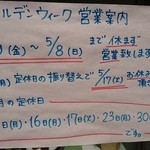 ルデンウィーク 営業案内
(金) ～ 5/8(日) まで 休まず
営業致します
月) 定休日の振り替えで 5/17(火) お休み
月の定休日
日(月)・16日(月)・17日(火)・23日(月)・30
です。